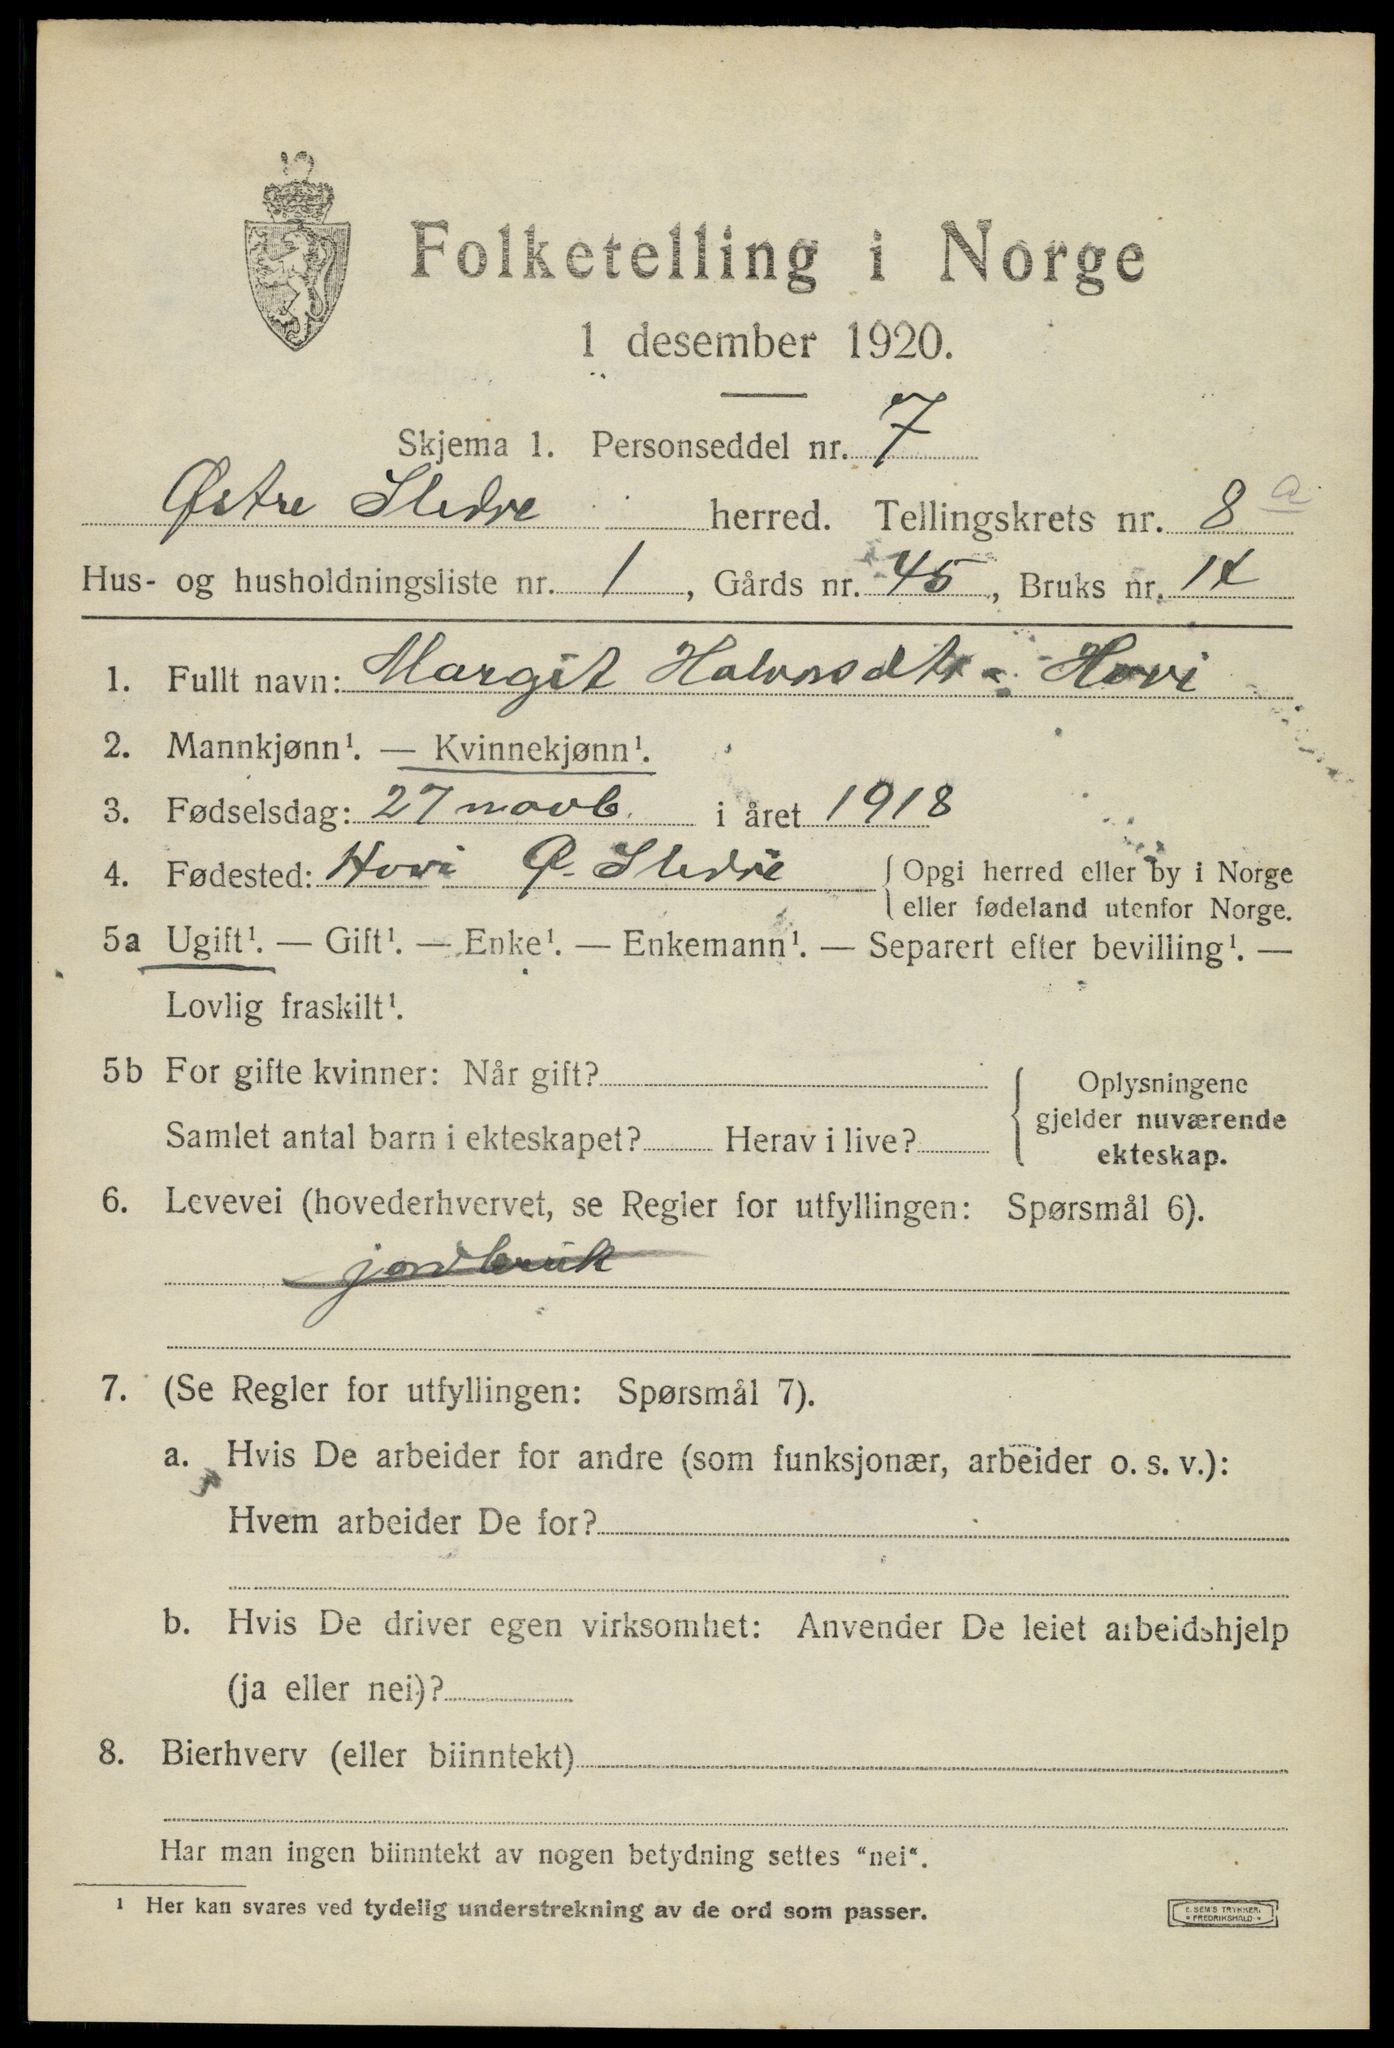 Folketelling i Norge
1 desember 1920.
Skjema 1. Personseddel nr. 7
Østre Slidre herred. Tellingskrets nr. 8 a
Hus- og husholdningsliste nr. 1, Gårds nr. 45, Bruks nr. 14
1. Fullt navn: Margit Halvorsdtr. Hovi
2. Mannkjønn¹. — Kvinnekjønn¹.
3. Fødselsdag: 27 novb. i året 1918
4. Fødested: Hovi Ø. Slidre { Opgi herred eller by i Norge
eller fødeland utenfor Norge.
5a Ugift¹. — Gift¹. — Enke¹. — Enkemann¹. — Separert efter bevilling¹. —
Lovlig fraskilt¹.
5b For gifte kvinner: Når gift?
Samlet antal barn i ekteskapet? Herav i live?
{ Oplysningene
gjelder nuværende
ekteskap.
6. Levevei (hovederhvervet, se Regler for utfyllingen: Spørsmål 6).
jordbruk
7. (Se Regler for utfyllingen: Spørsmål 7).
a. Hvis De arbeider for andre (som funksjonær, arbeider o. s. v.):
Hvem arbeider De for?
b. Hvis De driver egen virksomhet: Anvender De leiet arbeidshjelp
(ja eller nei)?
8. Bierhverv (eller biinntekt)
Har man ingen biinntekt av nogen betydning settes "nei".
¹ Her kan svares ved tydelig understrekning av de ord som passer.
E. SEM'S TRYKKERI
FREDRIKSHALD